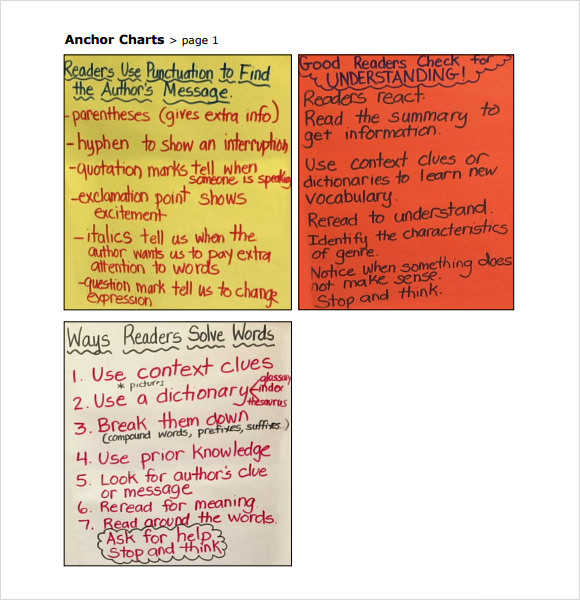 Anchor Charts > page 1
Readers Use Punctuation to Find
the Author's Message.
- parentheses (gives extra info)
- hyphen to show an interruption
- quotation marks tell when
someone is speaking
- exclamation point shows
excitement
- italics tell us when the
author wants us to pay extra
attention to words
- question mark tell us to change
expression
Good Readers Check for
UNDERSTANDING!
Readers react.
Read the summary to
get information.
Use context clues or
dictionaries to learn new
vocabulary.
Reread to understand.
Identify the characteristics
of genre.
Notice when something does
not make sense.
Stop and think.
Ways Readers Solve Words
1. Use context clues
* pictures
2. Use a dictionary
glossary
index
thesaurus
3. Break them down
(compound words, prefixes, suffixes..)
4. Use prior knowledge
5. Look for author's clue
or message
6. Reread for meaning
7. Read around the words.
Ask for help
Stop and think